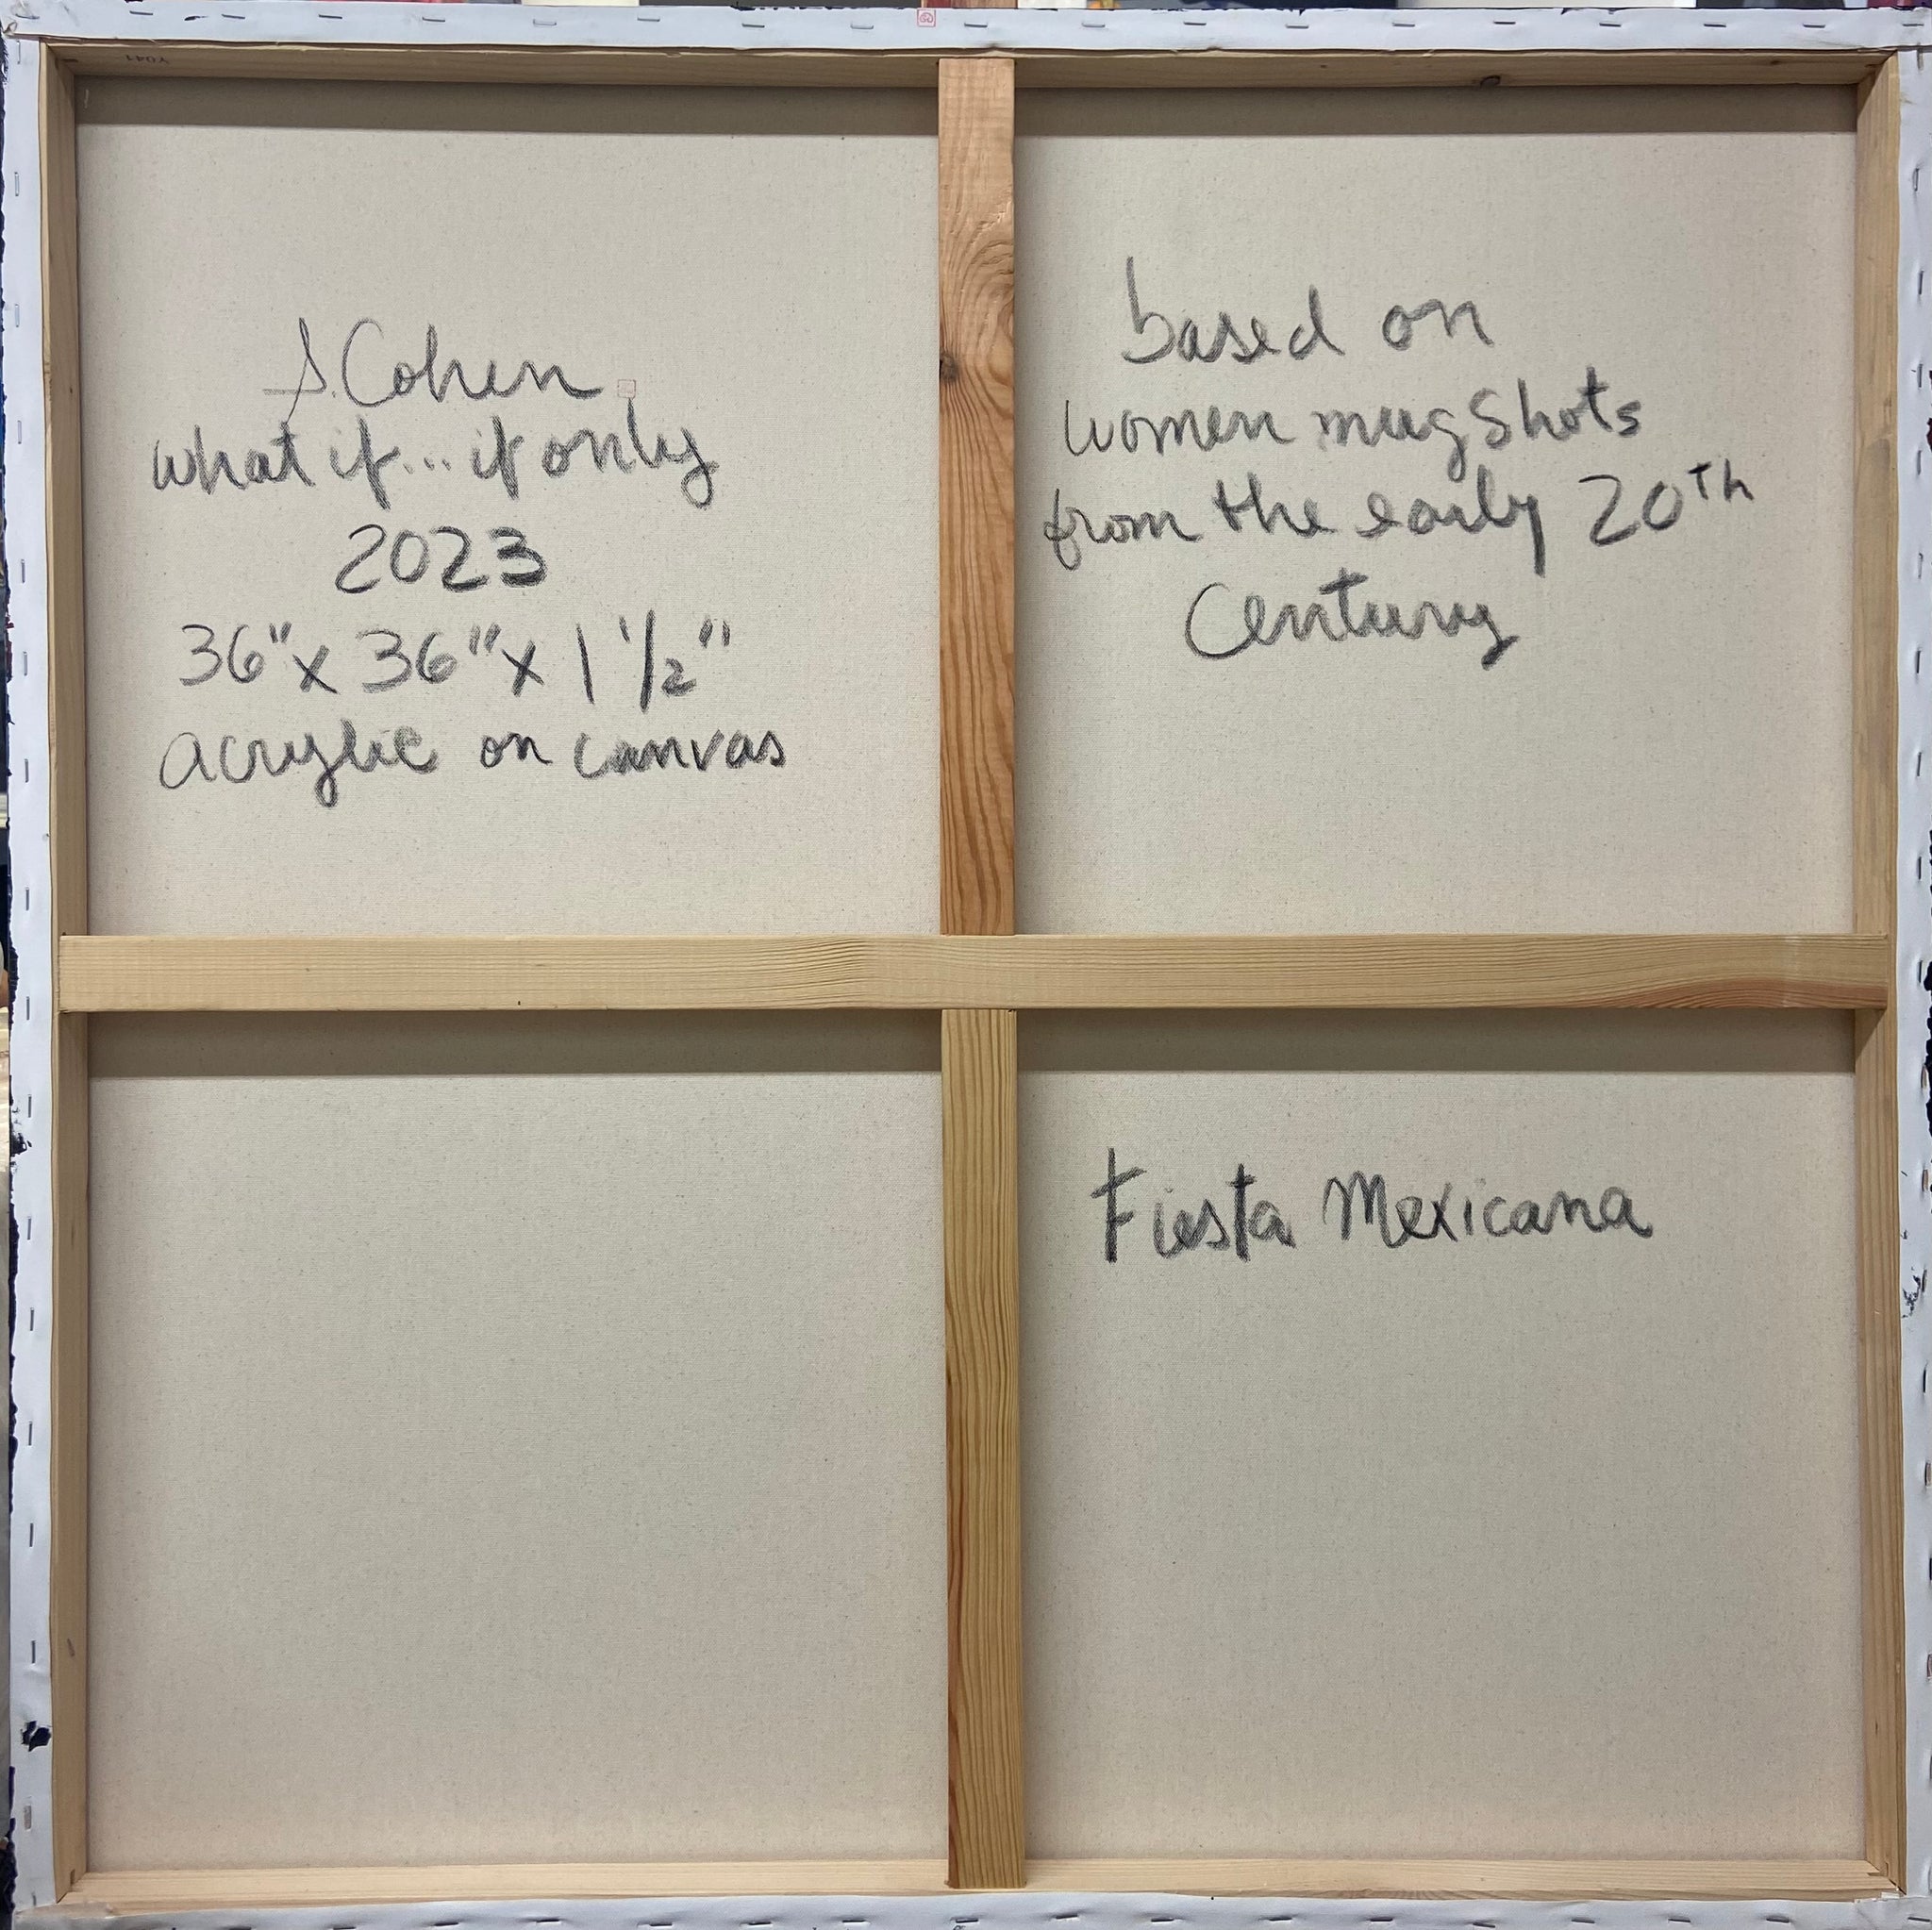 S. Cohen
what if... if only
2023
36" x 36" x 1 1/2"
acrylic on canvas
based on
women mugshots
from the early 20th
Century
Fiesta Mexicana